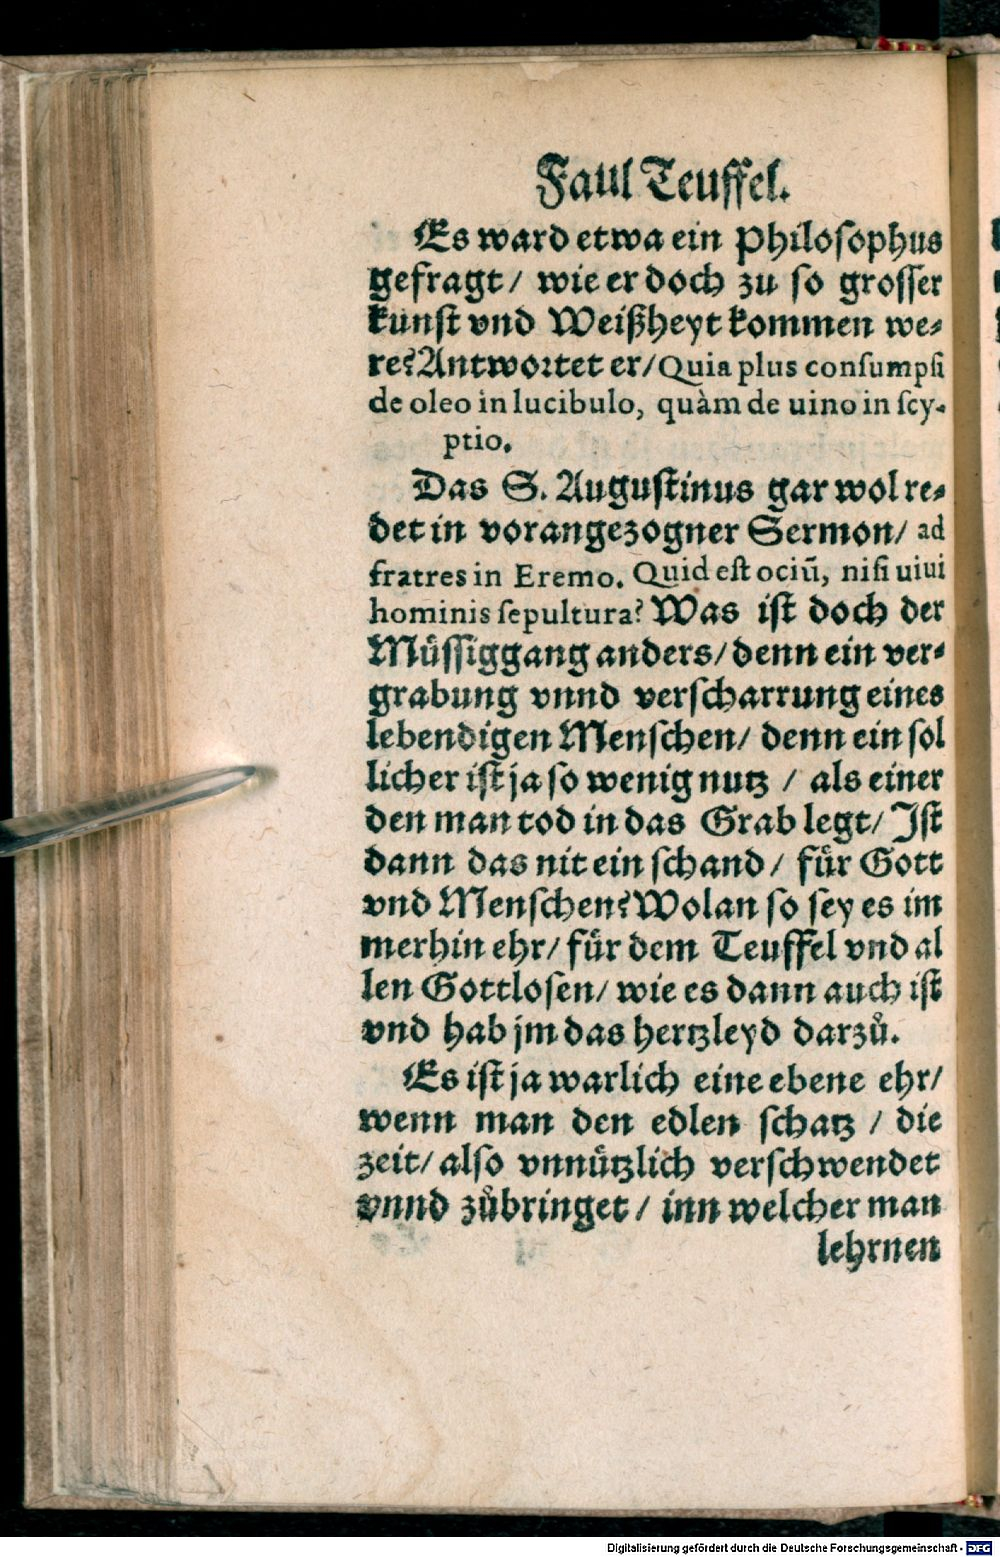 Faul Teuffel.
Es ward etwa ein Philosophus
gefragt/ wie er doch zu so grosser
kunst vnd Weißheyt kommen we⸗
re? Antwortet er/ Quia plus consumpsi
de oleo in lucibulo, quàm de uino in scy-
ptio.
Das S. Augustinus gar wol re⸗
det in vorangezogner Sermon/ ad
fratres in Eremo. Quid est ociũ, nisi uiui
hominis sepultura? Was ist doch der
Muͤssiggang anders/ denn ein ver⸗
grabung vnnd verscharrung eines
lebendigen Menschen/ denn ein sol
licher ist ja so wenig nutz / als einer
den man tod in das Grab legt/ Ist
dann das nit ein schand/ fuͤr Gott
vnd Menschen? Wolan so sey es im
merhin ehr/ fuͤr dem Teuffel vnd al
len Gottlosen/ wie es dann auch ist
vnd hab jm das hertzleyd darzuͦ.
Es ist ja warlich eine ebene ehr/
wenn man den edlen schatz / die
zeit/ also vnnuͤtzlich verschwendet
vnnd zuͦbringet/ inn welcher man
lehrnen
Digitalisierung gefördert durch die Deutsche Forschungsgemeinschaft - DFG